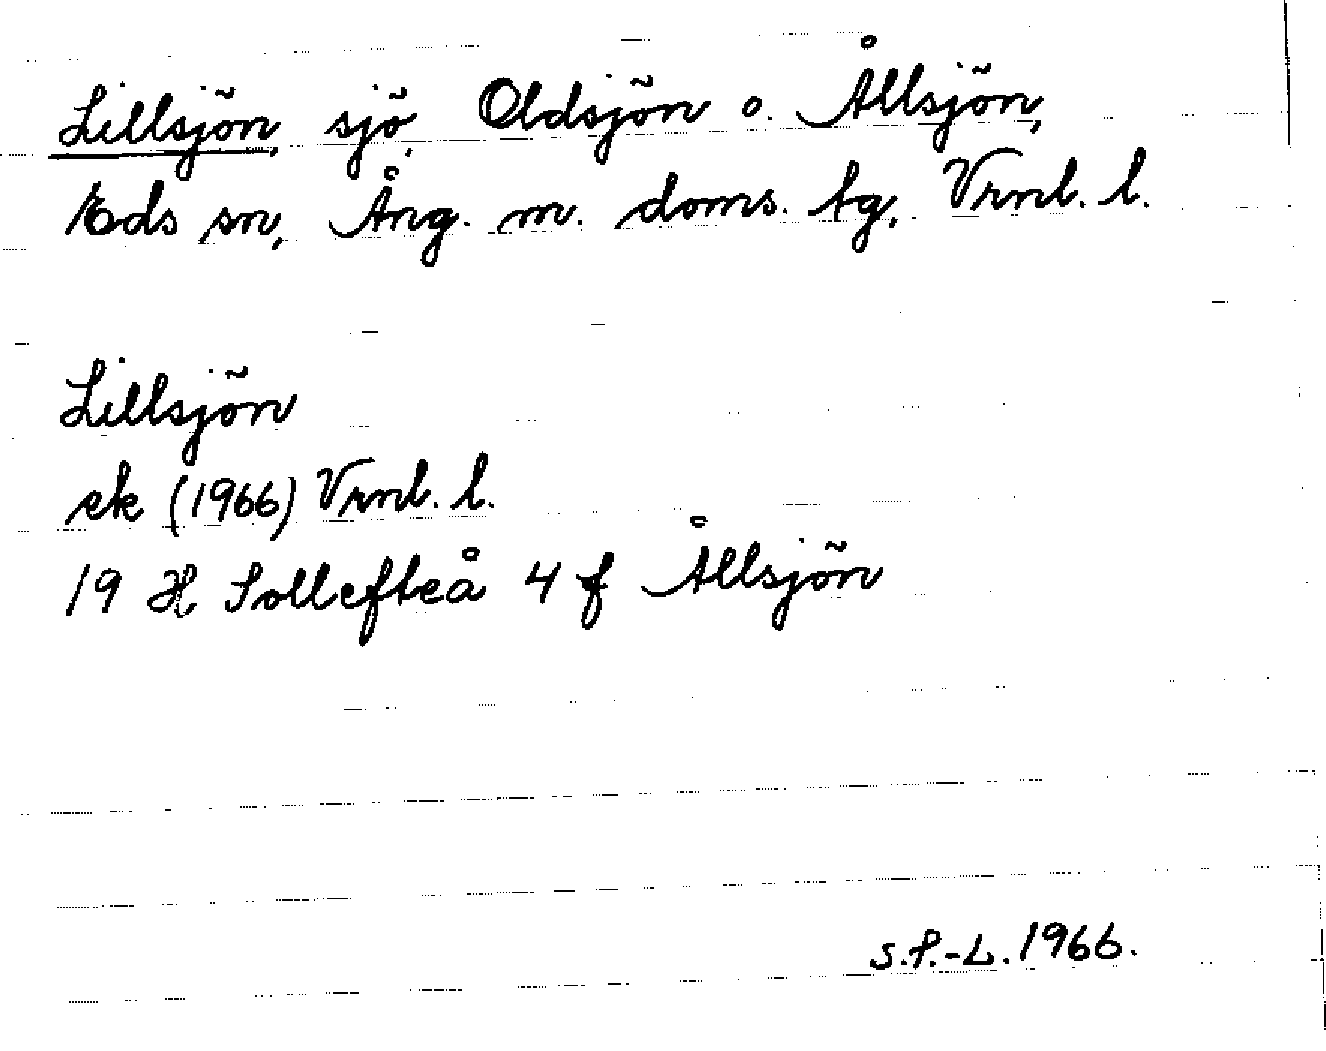 Lillsjön, sjö, Oldsjön o. Ållsjön,
Eds sn, Ång. m. doms. tg, Vrnl. l.
Lillsjön
ek (1966) Vrnl. l.
19 H Sollefteå 4 f Ållsjön
S.P.-L. 1966.